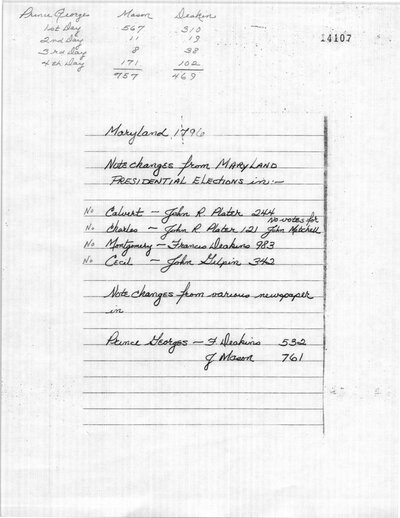 Prince Georges Mason Deakin
1st Day 567 310
2nd Day 11 19
3rd Day 8 38
4th Day 171 102
757 469
14107
Maryland 1796
Note changes from MARYLAND
PRESIDENTIAL ELECTIONS in:-
No Calvert - John R Plater 244
No votes for
No Charles - John R Plater 121 John Mitchell
No Montgomery - Francis Deakins 983
No Cecil - John Gilpin 342
Note changes from various newspaper
in
Prince Georges - F Deakins 532
J Mason 761